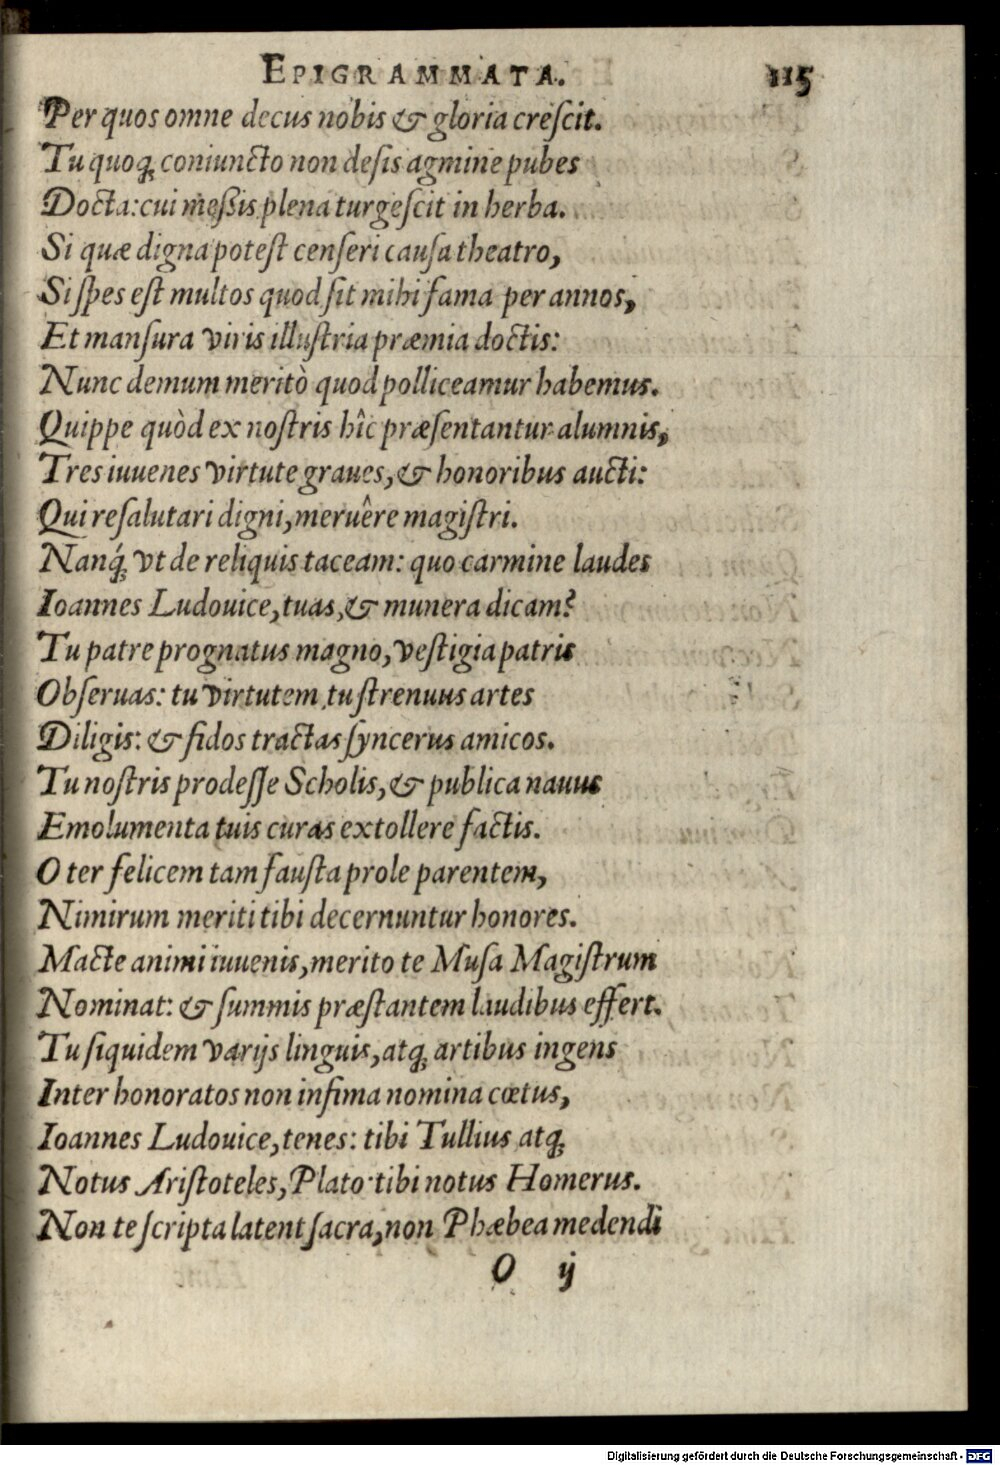 EPIGRAMMATA. 115
Per quos omne decus nobis & gloria creſcit.
Tu quoq; coniuncto non deſis agmine pubes
Docta: cui meſsis plena turgeſcit in herba.
Si quæ digna poteſt cenſeri cauſa theatro,
Si ſpes eſt multos quod ſit mihi fama per annos,
Et manſura viris illuſtria præmia doctis:
Nunc demum meritò quod polliceamur habemus.
Quippe quòd ex noſtris hîc præſentantur alumnis,
Tres iuuenes virtute graues, & honoribus aucti:
Qui reſalutari digni, meruêre magiſtri.
Nanq́; vt de reliquis taceam: quo carmine laudes
Ioannes Ludouice, tuas, & munera dicam?
Tu patre prognatus magno, veſtigia patris
Obſeruas: tu virtutem, tu ſtrenuus artes
Diligis: & fidos tractas ſyncerus amicos.
Tu noſtris prodeſſe Scholis, & publica nauus
Emolumenta tuis curas extollere factis.
O ter felicem tam fauſta prole parentem,
Nimirum meriti tibi decernuntur honores.
Macte animi iuuenis, merito te Muſa Magiſtrum
Nominat: & ſummis præſtantem laudibus effert.
Tu ſiquidem varijs linguis, atq; artibus ingens
Inter honoratos non infima nomina cœtus,
Ioannes Ludouice, tenes: tibi Tullius atq;
Notus Ariſtoteles, Plato tibi notus Homerus.
Non te ſcripta latent ſacra, non Phæbea medendi
O ij
Digitalisierung gefördert durch die Deutsche Forschungsgemeinschaft - DFG